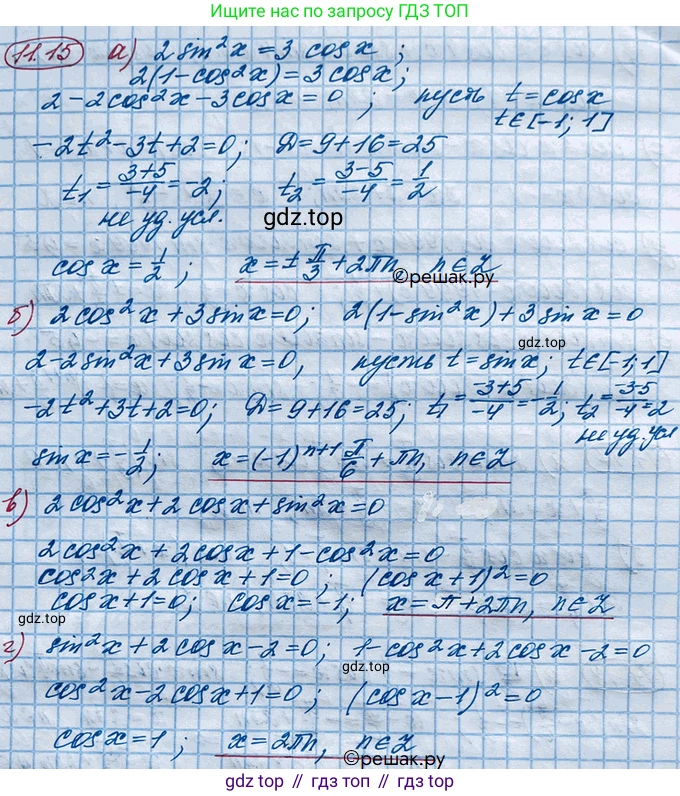 Ищите нас по запросу ГДЗ ТОП
11.15 а) 2 sin²x = 3 cosx ;
2(1-cos²x) = 3 cosx;
2-2cos²x-3cosx=0 ; пусть t=cosx
t∈[-1; 1]
-2t²-3t+2=0; D=9+16=25
t₁ = (3+5)/-4 = -2; t₂ = (3-5)/-4 = 1/2
не уд. усл.
gdz.top
cosx = 1/2 ; x = ± π/3 + 2πn, n∈Z
©решак.ру
б) 2cos²x+3sinx=0; 2(1-sin²x)+3sinx=0
2-2sin²x+3sinx=0, пусть t=sinx; t∈[-1;1]
-2t²+3t+2=0; D=9+16=25; t₁ = (-3+5)/-4 = -1/2; t₂ = (-3-5)/-4 = 2
не уд. усл
sinx = -1/2; x=(-1)ⁿ⁺¹ π/6 + πn, n∈Z
в) 2cos²x+2cosx+sin²x=0
2cos²x+2cosx+1-cos²x=0
cos²x+2cosx+1=0 ; (cosx+1)²=0
cosx+1=0; cosx=-1; x=π+2πn, n∈Z
gdz.top
gdz.top
г) sin²x+2cosx-2=0; 1-cos²x+2cosx-2=0
gdz.top
cos²x-2cosx+1=0 ; (cosx-1)²=0
cosx=1 ; x=2πn, n∈Z
©решак.ру
gdz топ // гдз топ // гдз топ